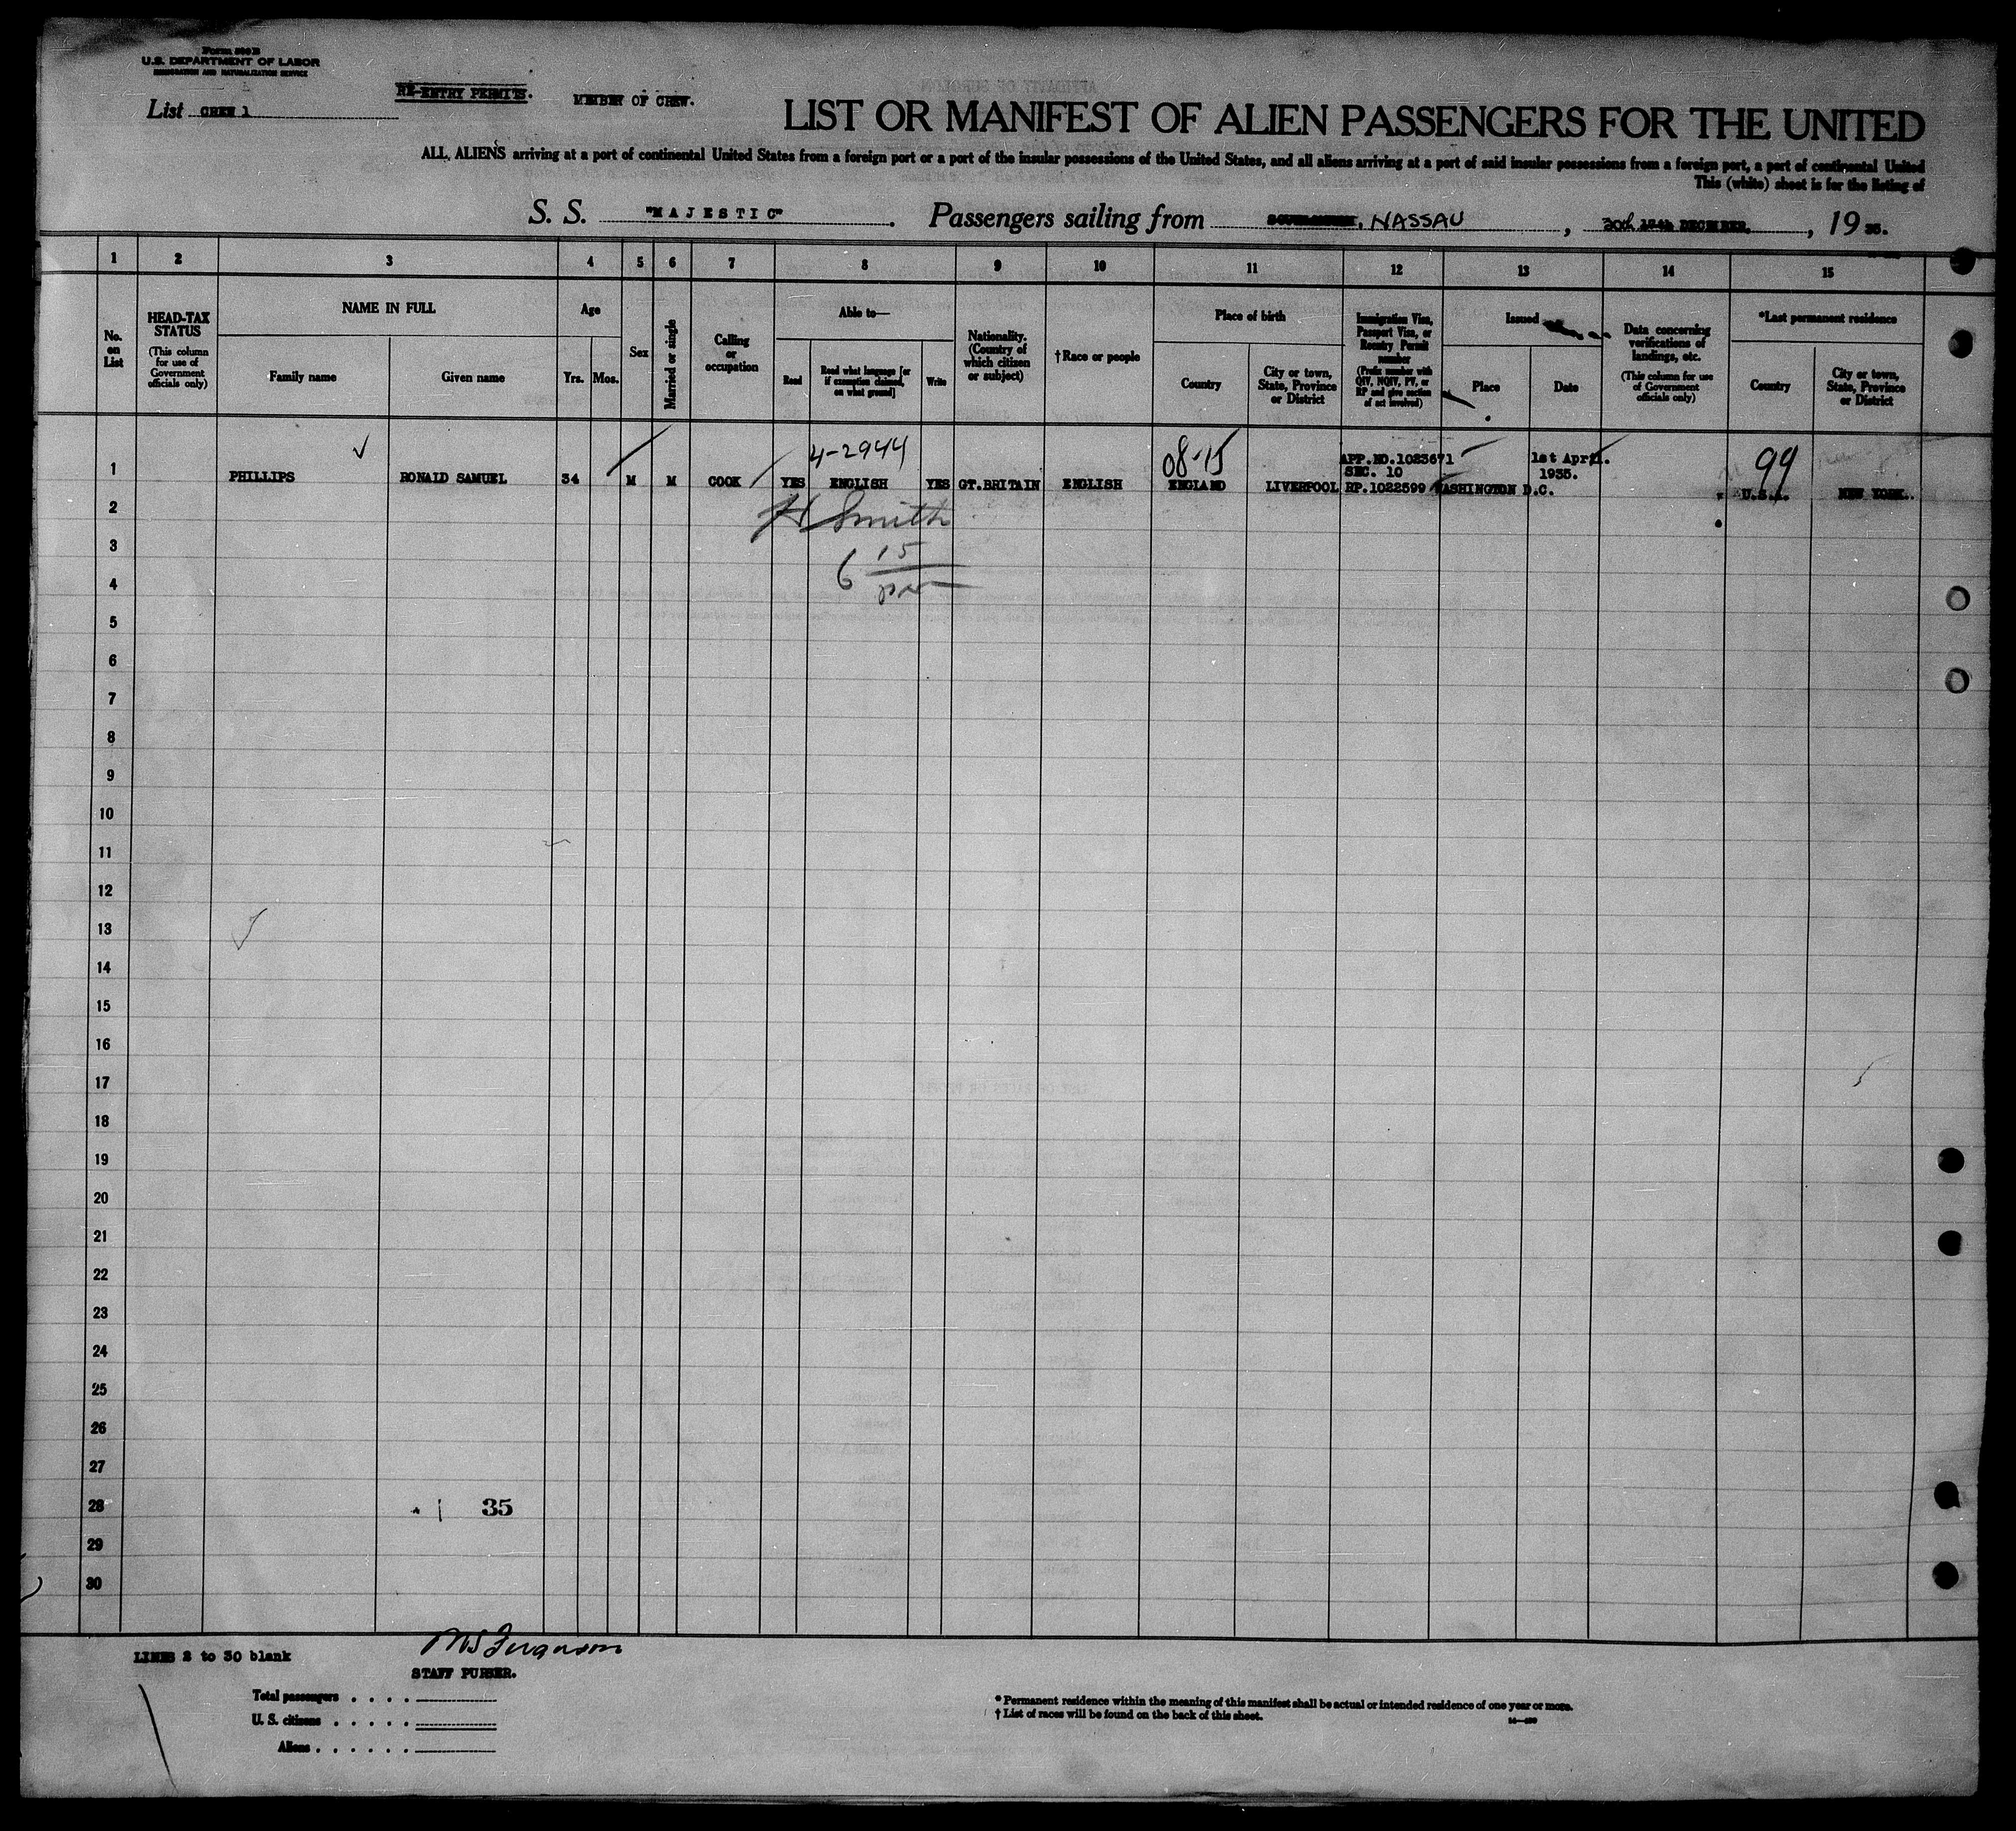 Form 500 B
U.S. DEPARTMENT OF LABOR
IMMIGRATION AND NATURALIZATION SERVICE
List CREW 1
RE-ENTRY PERMITS.
MEMBER OF CREW.
LIST OR MANIFEST OF ALIEN PASSENGERS FOR THE UNITED
ALL ALIENS arriving at a port of continental United States from a foreign port or a port of the insular possessions of the United States, and all aliens arriving at a port of said insular possessions from a foreign port, a port of continental United
This (white) sheet is for the listing of
S. S. "MAJESTIC". Passengers sailing from SOUTHAMPTON, NASSAU, 30th DECEMBER, 1935.
1 2 3 4 5 6 7 8 9 10 11 12 13 14 15
No. on List
HEAD-TAX STATUS
(This column for use of Government officials only)
NAME IN FULL
Family name
Given name
Age
Yrs. Mos.
Sex
Married or single
Calling or occupation
Able to—
Read
Read what language [or if exemption claimed, on what ground]
Write
Nationality. (Country of which citizen or subject)
†Race or people
Place of birth
Country
City or town, State, Province or District
Immigration Visa, Passport Visa, or Reentry Permit number
(Prefix number with QIV, NQIV, PV, or RP and give section of act involved)
Issued
Place
Date
Data concerning verifications of landings, etc.
(This column for use of Government officials only)
*Last permanent residence
Country
City or town, State, Province or District
4-2944
08-15
APP.NO.1023671
SEC. 10
1st April.
1935.
99
1 PHILLIPS RONALD SAMUEL 34 M M COOK YES ENGLISH YES GT.BRITAIN ENGLISH ENGLAND LIVERPOOL RP.1022599 WASHINGTON D.C. U.S.A. NEW YORK.
H Smith
2
3
6 15
4
5
6
7
8
9
10
11
12
13
14
15
16
17
18
19
20
21
22
23
24
25
26
27
28 35
29
30
LINES 2 to 30 blank
STAFF PURSER.
Total passengers
U. S. citizens
Aliens
* Permanent residence within the meaning of this manifest shall be actual or intended residence of one year or more.
† List of races will be found on the back of this sheet.